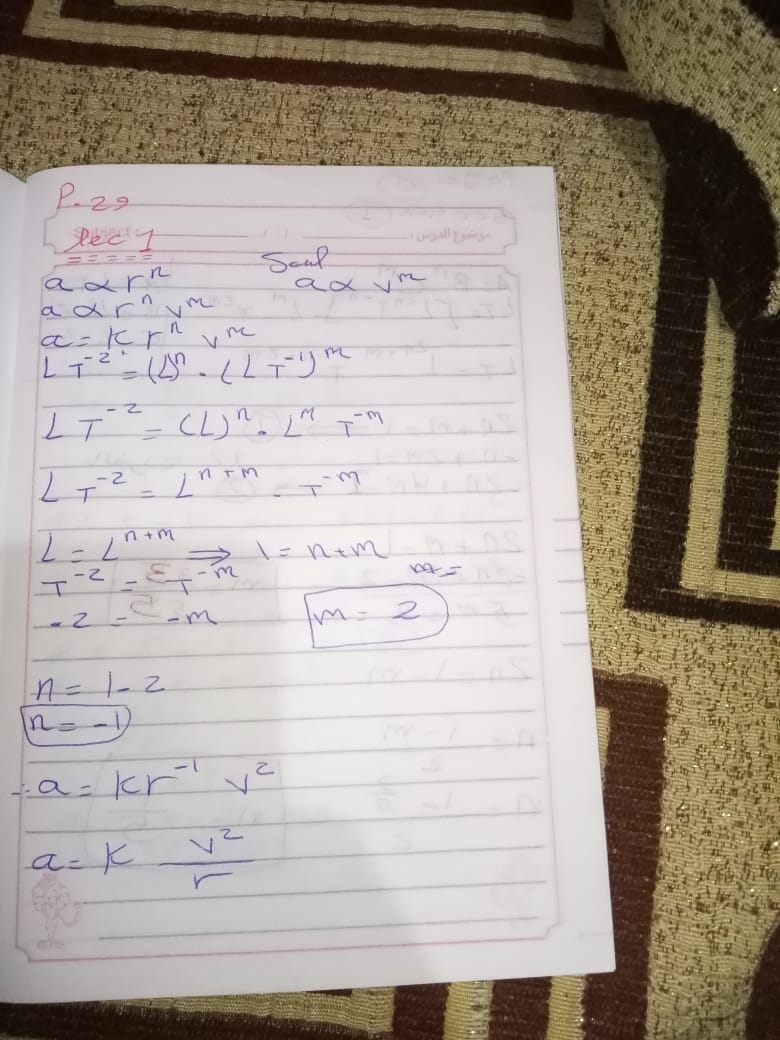 P. 29
Lec 1
موضوع الدرس :
a ∝ rⁿ a ∝ vᵐ
a ∝ rⁿ vᵐ
a = K rⁿ vᵐ
L T⁻² = (L)ⁿ . (L T⁻¹)ᵐ
L T⁻² = (L)ⁿ . Lᵐ T⁻ᵐ
L T⁻² = Lⁿ⁺ᵐ . T⁻ᵐ
L = Lⁿ⁺ᵐ ⇒ 1 = n+m
T⁻² = T⁻ᵐ
-2 = -m m = 2
n = 1-2
n = -1
∴ a = K r⁻¹ v²
a = K v²/r